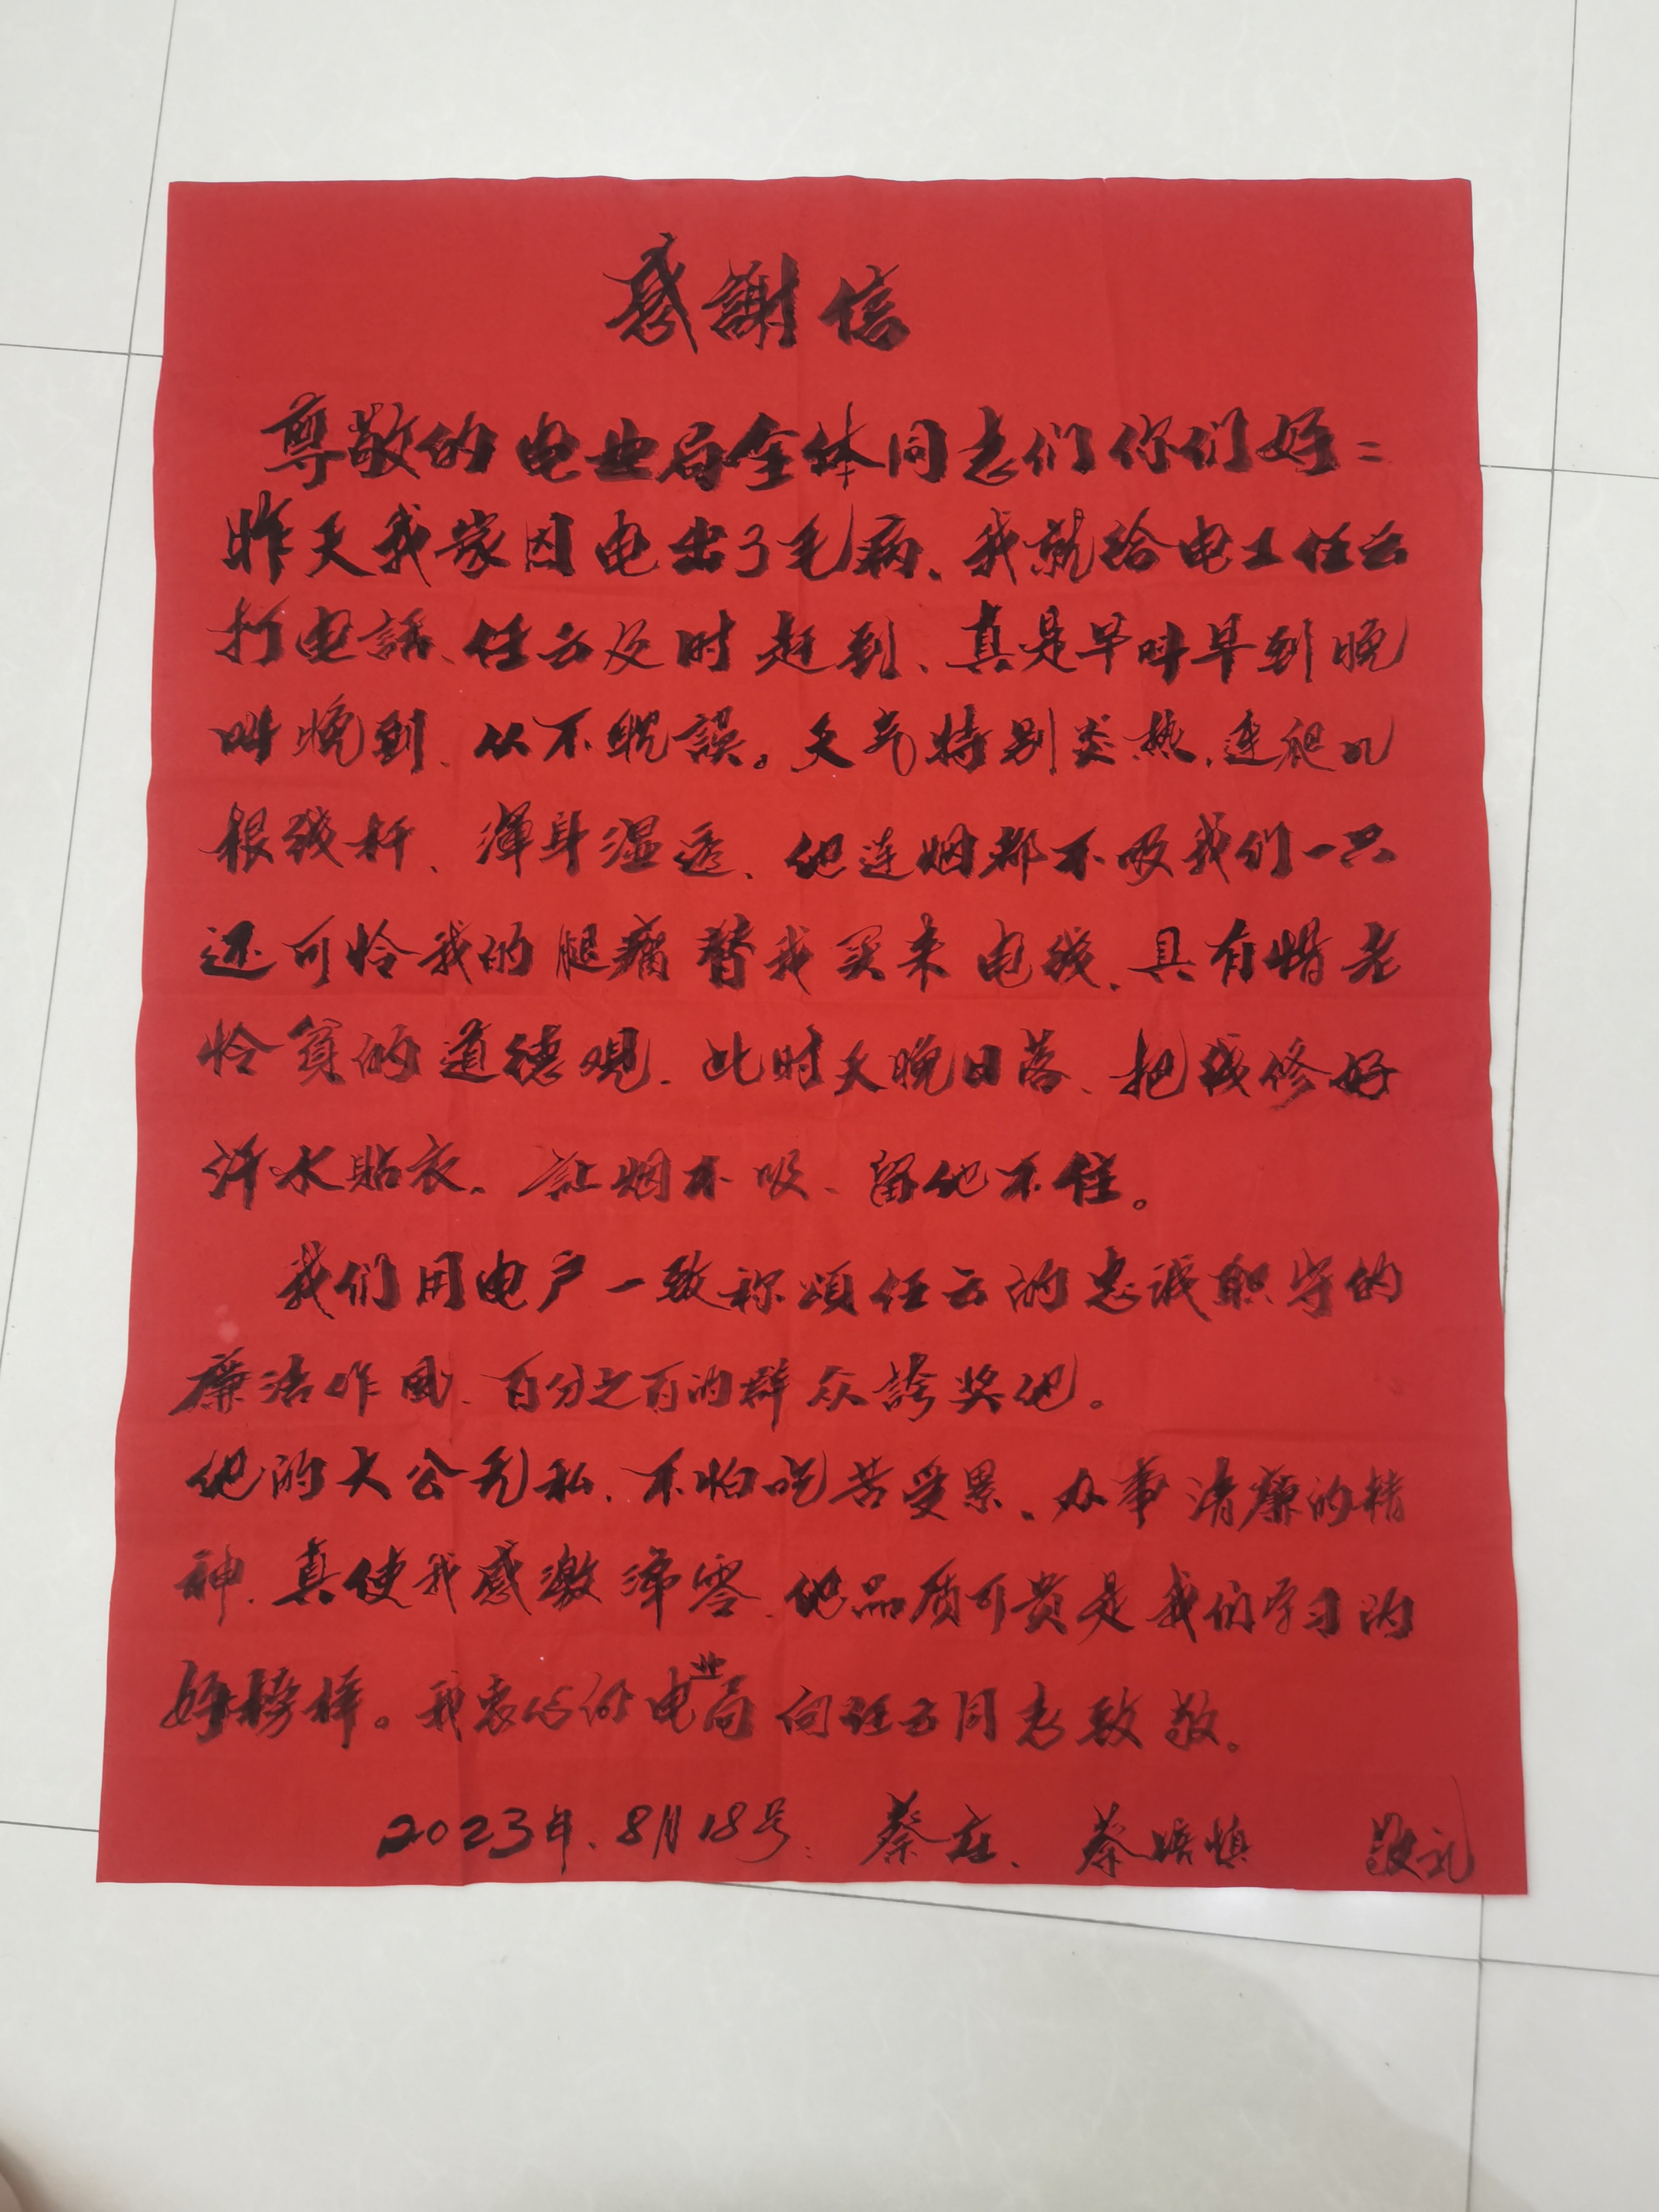 感謝信
尊敬的电业局全体同志们你们好：
昨天我家因电出了毛病、我就给电工任云
打电話、任云及时赶到、真是早叫早到晚
叫晚到、从不耽誤。天气特别炎热、连爬几
根线杆、渾身湿透、他连烟都不吸我们一只
还可怜我的腿痛替我买来电线、具有惜老
怜貧的道德观、此时天晚日落、把线修好
汗水貼衣、让烟不吸、留他不住。
我们用电户一致称頌任云的忠诚职守的
廉洁作风、百分之百的群众誇奖他。
他的大公无私、不怕吃苦受累、办事清廉的精
神、真使我感激涕零、他品质可贵是我们学习的
好榜样。我衷心的电业局向任云同志致敬。
2023年.8月18号： 蔡庄、 蔡 慎 敬礼